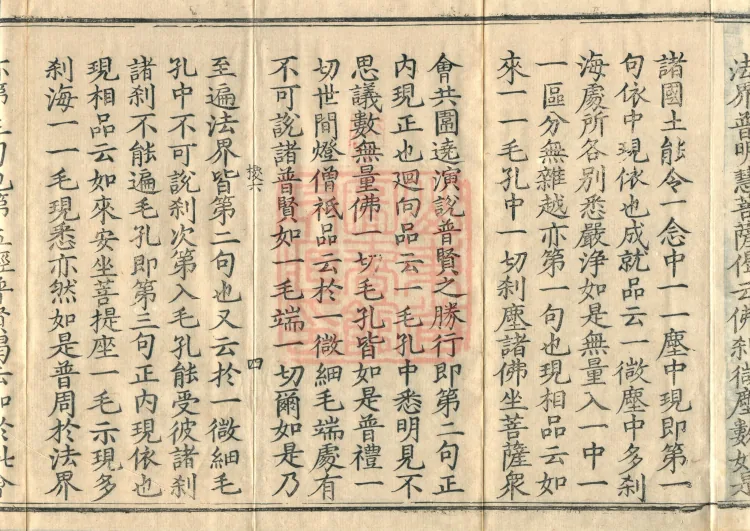 法界普明慧菩薩偈云佛刹微塵數如是
諸國土能令一念中一一塵中現即第一
句依中現依也成就品云一微塵中多刹
海處所各別悉嚴淨如是無量入一中一
一區分無雜越亦第一句也現相品云如
來一一毛孔中一切刹塵諸佛坐菩薩衆
會共圍遶演說普賢之勝行即第二句正
內現正也迴向品云一毛孔中悉明見不
思議數無量佛一切毛孔皆如是普禮一
切世間燈僧祇品云於一微細毛端處有
不可說諸普賢如一毛端一切爾如是乃
四
至遍法界皆第二句也又云於一微細毛
孔中不可說刹次第入毛孔能受彼諸刹
諸刹不能遍毛孔即第三句正內現依也
現相品云如來安坐菩提座一毛示現多
刹海一一毛現悉亦然如是普周於法界
亦第三句也第五經普賢偈云如於此會